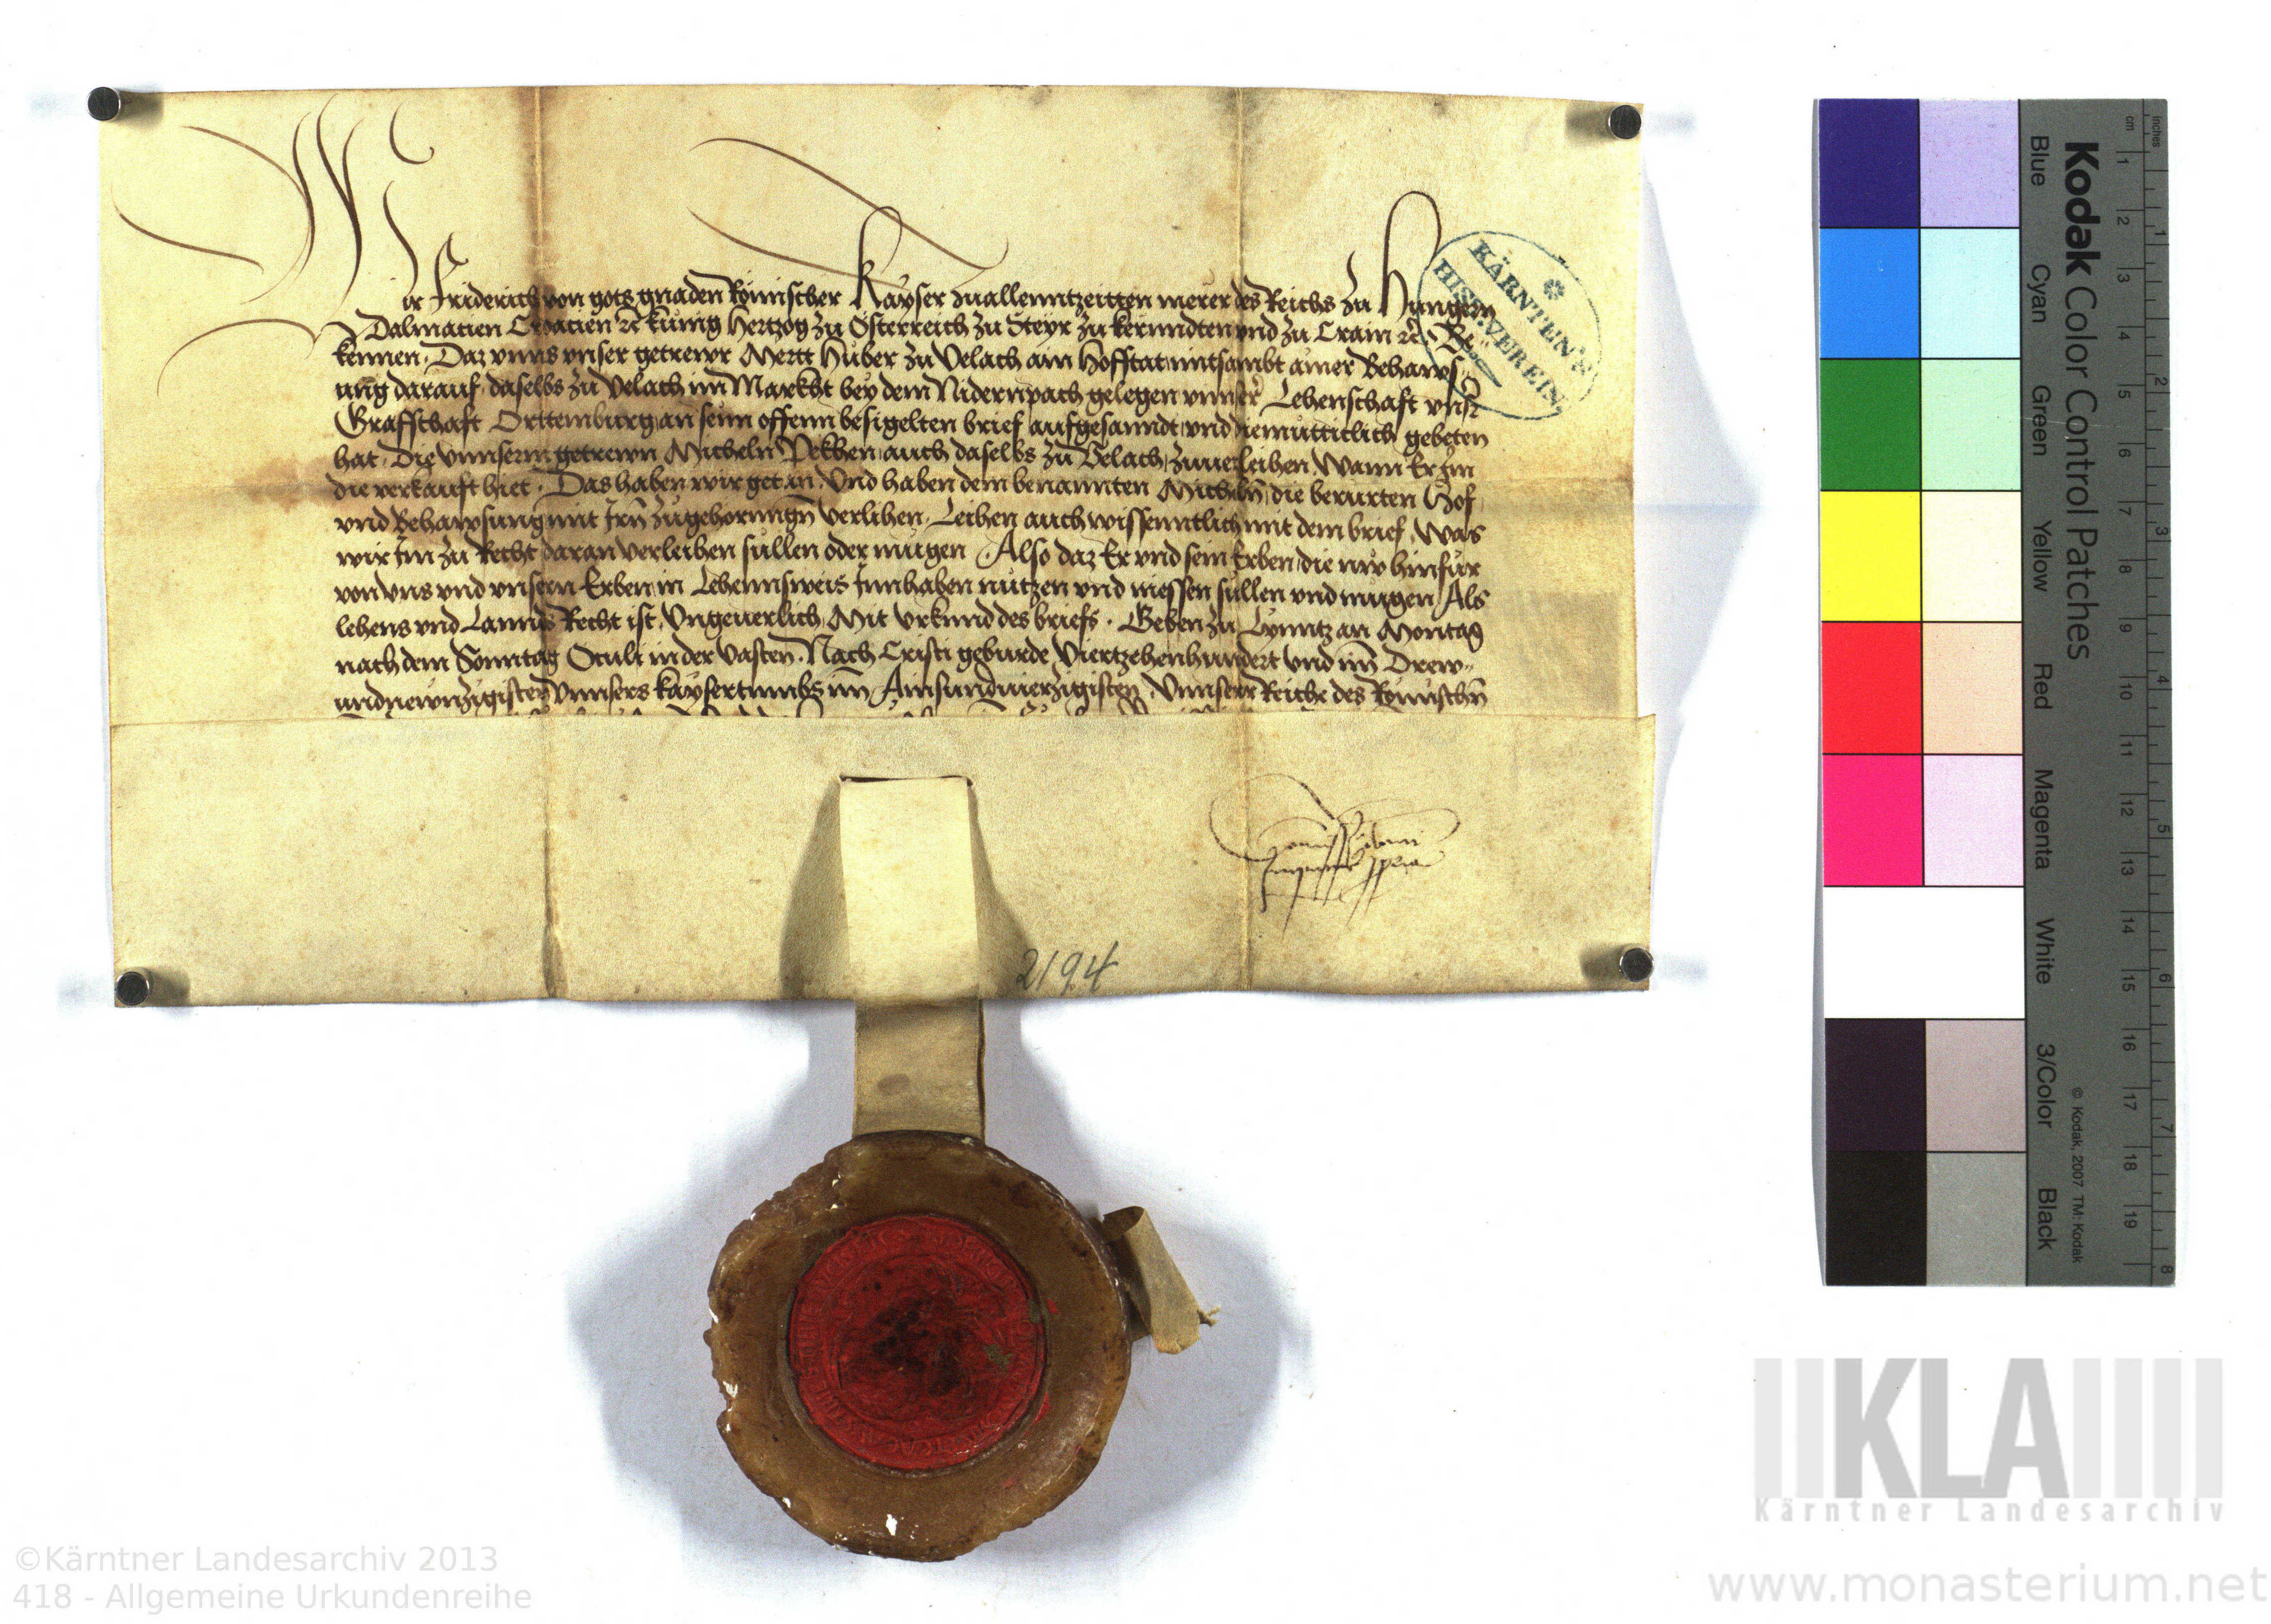 Wir Friderich von gots gnaden Römischer Kayser zuallenntzeitten merer des Reichs zu Hungern
Dalmatien Croatien rc kunig Hertzog zu Österreich zu Steyr zu kernndten vnd zu Crain rc Be
kennen. Daz vnns vnser getrewr Mertt Huber zu Velach ain Hofstat mitsambt ainer Behaws
ung darauf daselbs zu Velach im Markht bey dem Nidernpach gelegen vnnser Lehenschaft vnsr
Graffschaft Orttemburg an seim offenn besigelten brief aufgesanndt vnd diemutticlich gebeten
hat. Die vnnserm getrewn Micheln Pekhen auch daselbs zu Velach zuuerleihen Wann Er Im
die verkauft hiet. Das haben wir getan. Vnd haben dem benannten Micheln die berurten Hof
vnd Behawsung mit Irn zugehorungn verlihen. Leihen auch wissenntlich mit dem brief. Was
wir Im zu Recht daran verleihen sullen oder mugen. Also daz Er vnd sein Erben die nw hinfür
von vns vnd vnsern Erben in Lehennsweis Innhaben nutzen vnd niessen sullen vnd mugen Als
lehens vnd Lannds Recht ist. Vngeuerlich Mit Vrkund des briefs. Geben zu Lynntz an Montag
nach dem Sonntag Oculi in der Vasten. Nach Cristi geburde Viertzehenhundert vnd im Drew
undnewnzigisten Vnnsers kaysertumbs im Ainsundvierzigisten. Vnnserr Reiche des Römischn
KÄRNTEN'S
HIST. VEREIN.
2194
Kodak Color Control Patches
Blue Cyan Green Yellow Red Magenta White 3/Color Black
© Kodak, 2007 TM: Kodak
inches 1 2 3 4 5 6 7 8
cm 1 2 3 4 5 6 7 8 9 10 11 12 13 14 15 16 17 18 19
KLA
Kärntner Landesarchiv
©Kärntner Landesarchiv 2013
418 - Allgemeine Urkundenreihe
www.monasterium.net